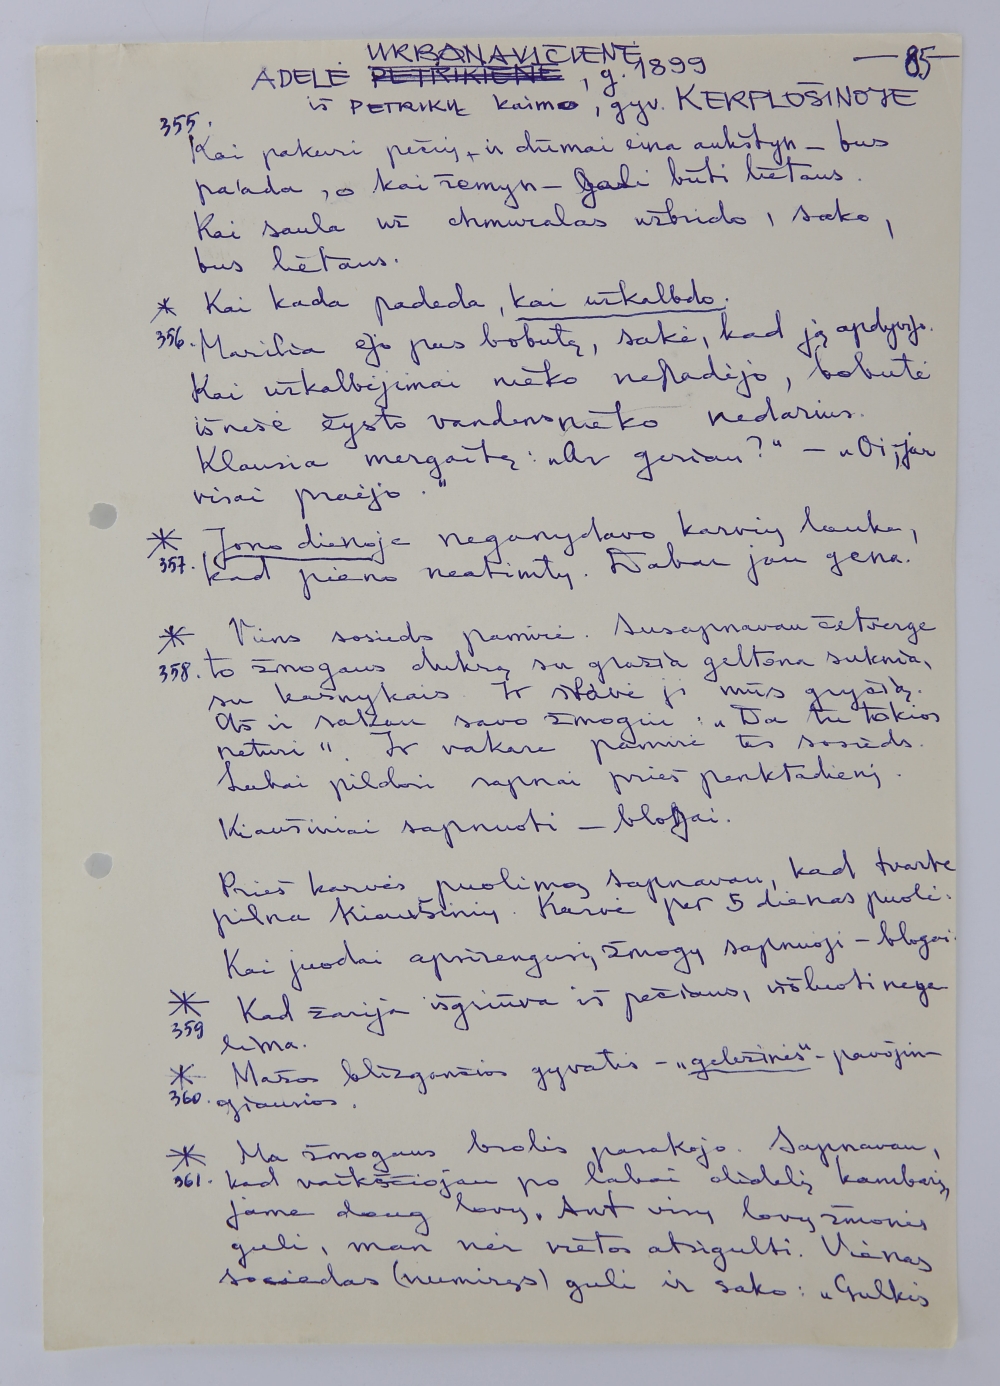 URBONAVIČIENĖ
— 85 —
ADELĖ PETRIKIENĖ, g. 1899
iš PETRIKŲ kaimo, gyv. KERPLOŠINOJE
355.
Kai pakuri pečių, ir dūmai eina aukštyn – bus
pa'ada, o kai žemyn – gali būti liėtaus.
Kai saula už chmuralas užbrido, sako,
bus liėtaus.
* Kai kada padeda, kai užkalbdo.
356. Marilia ėjo pas bobutę, sakė, kad ją apdyvyjo.
Kai užkalbėjimai niėko nepadėjo, bobutė
išnešė čysto vandens niėko nedarius.
Klausia mergaitę: „Ar geriau?“ – „Oi, jau
visai praėjo.“
* Jono dienoje neganydavo karvių lauke,
357. kad pieno neatimtų. Dabar jau gena.
* Viens sosieds pamirė. Susapnavau četverge
358. to žmogaus dukrą su gražia geltona suknia,
su kasnykais. Ir stovė ji mūs gryčią.
Aš ir sakau savo žmogui: „Da tu tokios
neturi“. Ir vakare pamirė tas sosieds.
Labai pildosi sapnai prieš penktadienį.
Kiaušiniai sapnuoti – blogai.
Prieš karvės puolimą sapnavau, kad tvarte
pilna kiaušinių. Karvė per 5 dienas puolė.
Kai juodai apsirengusį žmogų sapnuoji – blogai.
* Kad žarija išgriūva iš pečiaus, iššluoti nega-
359 lima.
* Mažos blizgančios gyvatės – „geležinės“ – pavojin-
360. giausios.
* Ma žmogaus brolis pasakojo. Sapnavau,
361. kad vaikščiojau po labai didelį kambarį,
jame daug lovų. Ant visų lovų žmonės
guli, man nėr viėtos atsigulti. Viėnas
sosiedas (numiręs) guli ir sako: „Gulkis